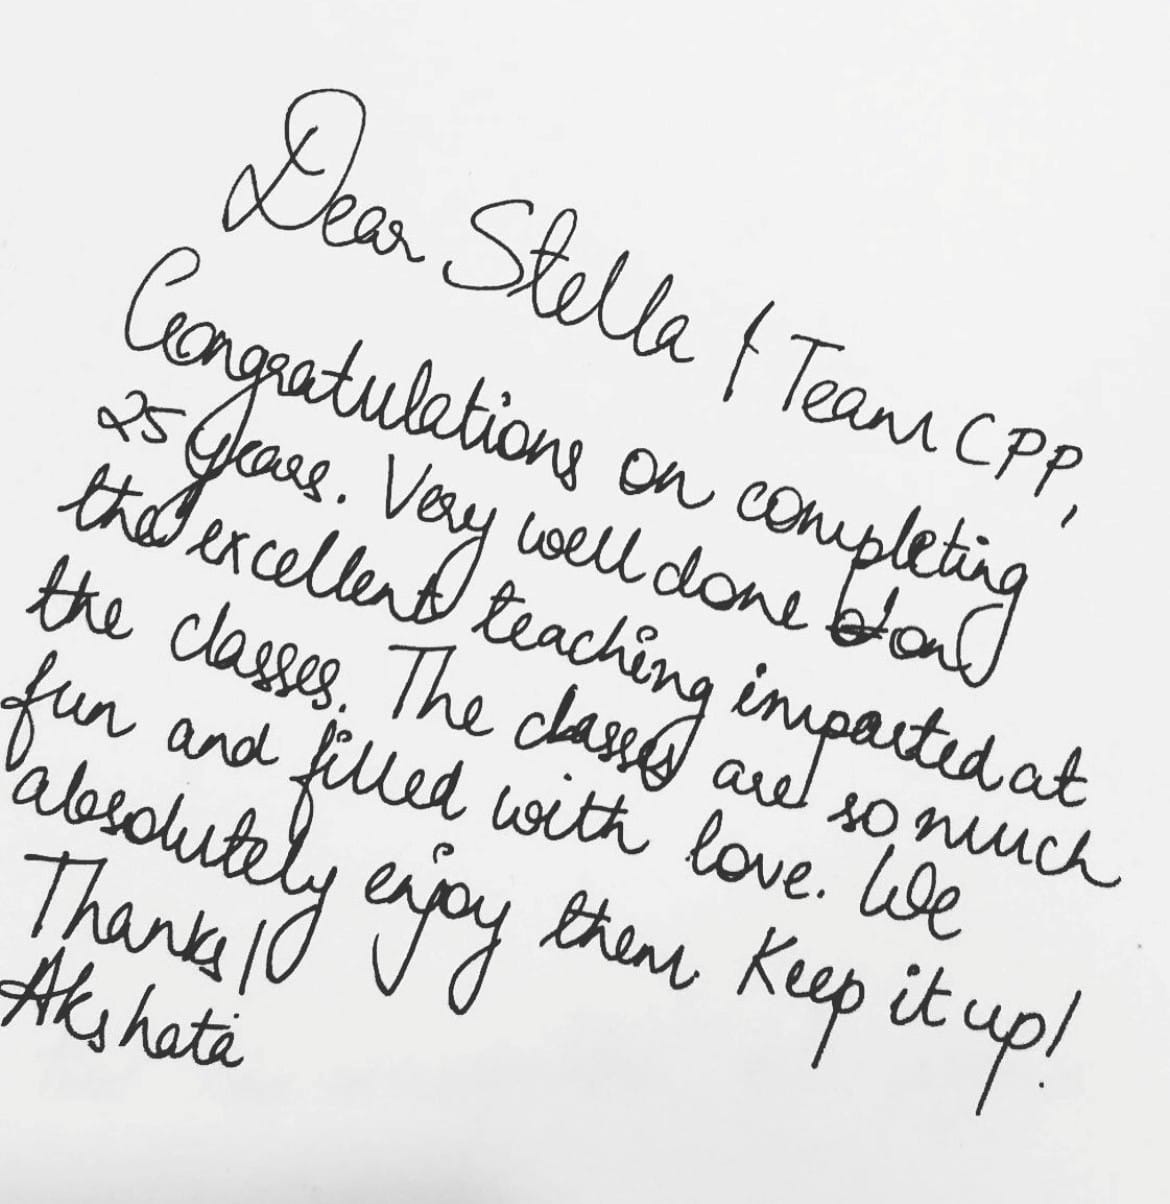 Dear Stella & Team CPP,
Congratulations on completing
25 years. Very well done on
the excellent teaching imparted at
the classes. The classes are so much
fun and filled with love. We
absolutely enjoy them. Keep it up!
Thanks!
Akshata